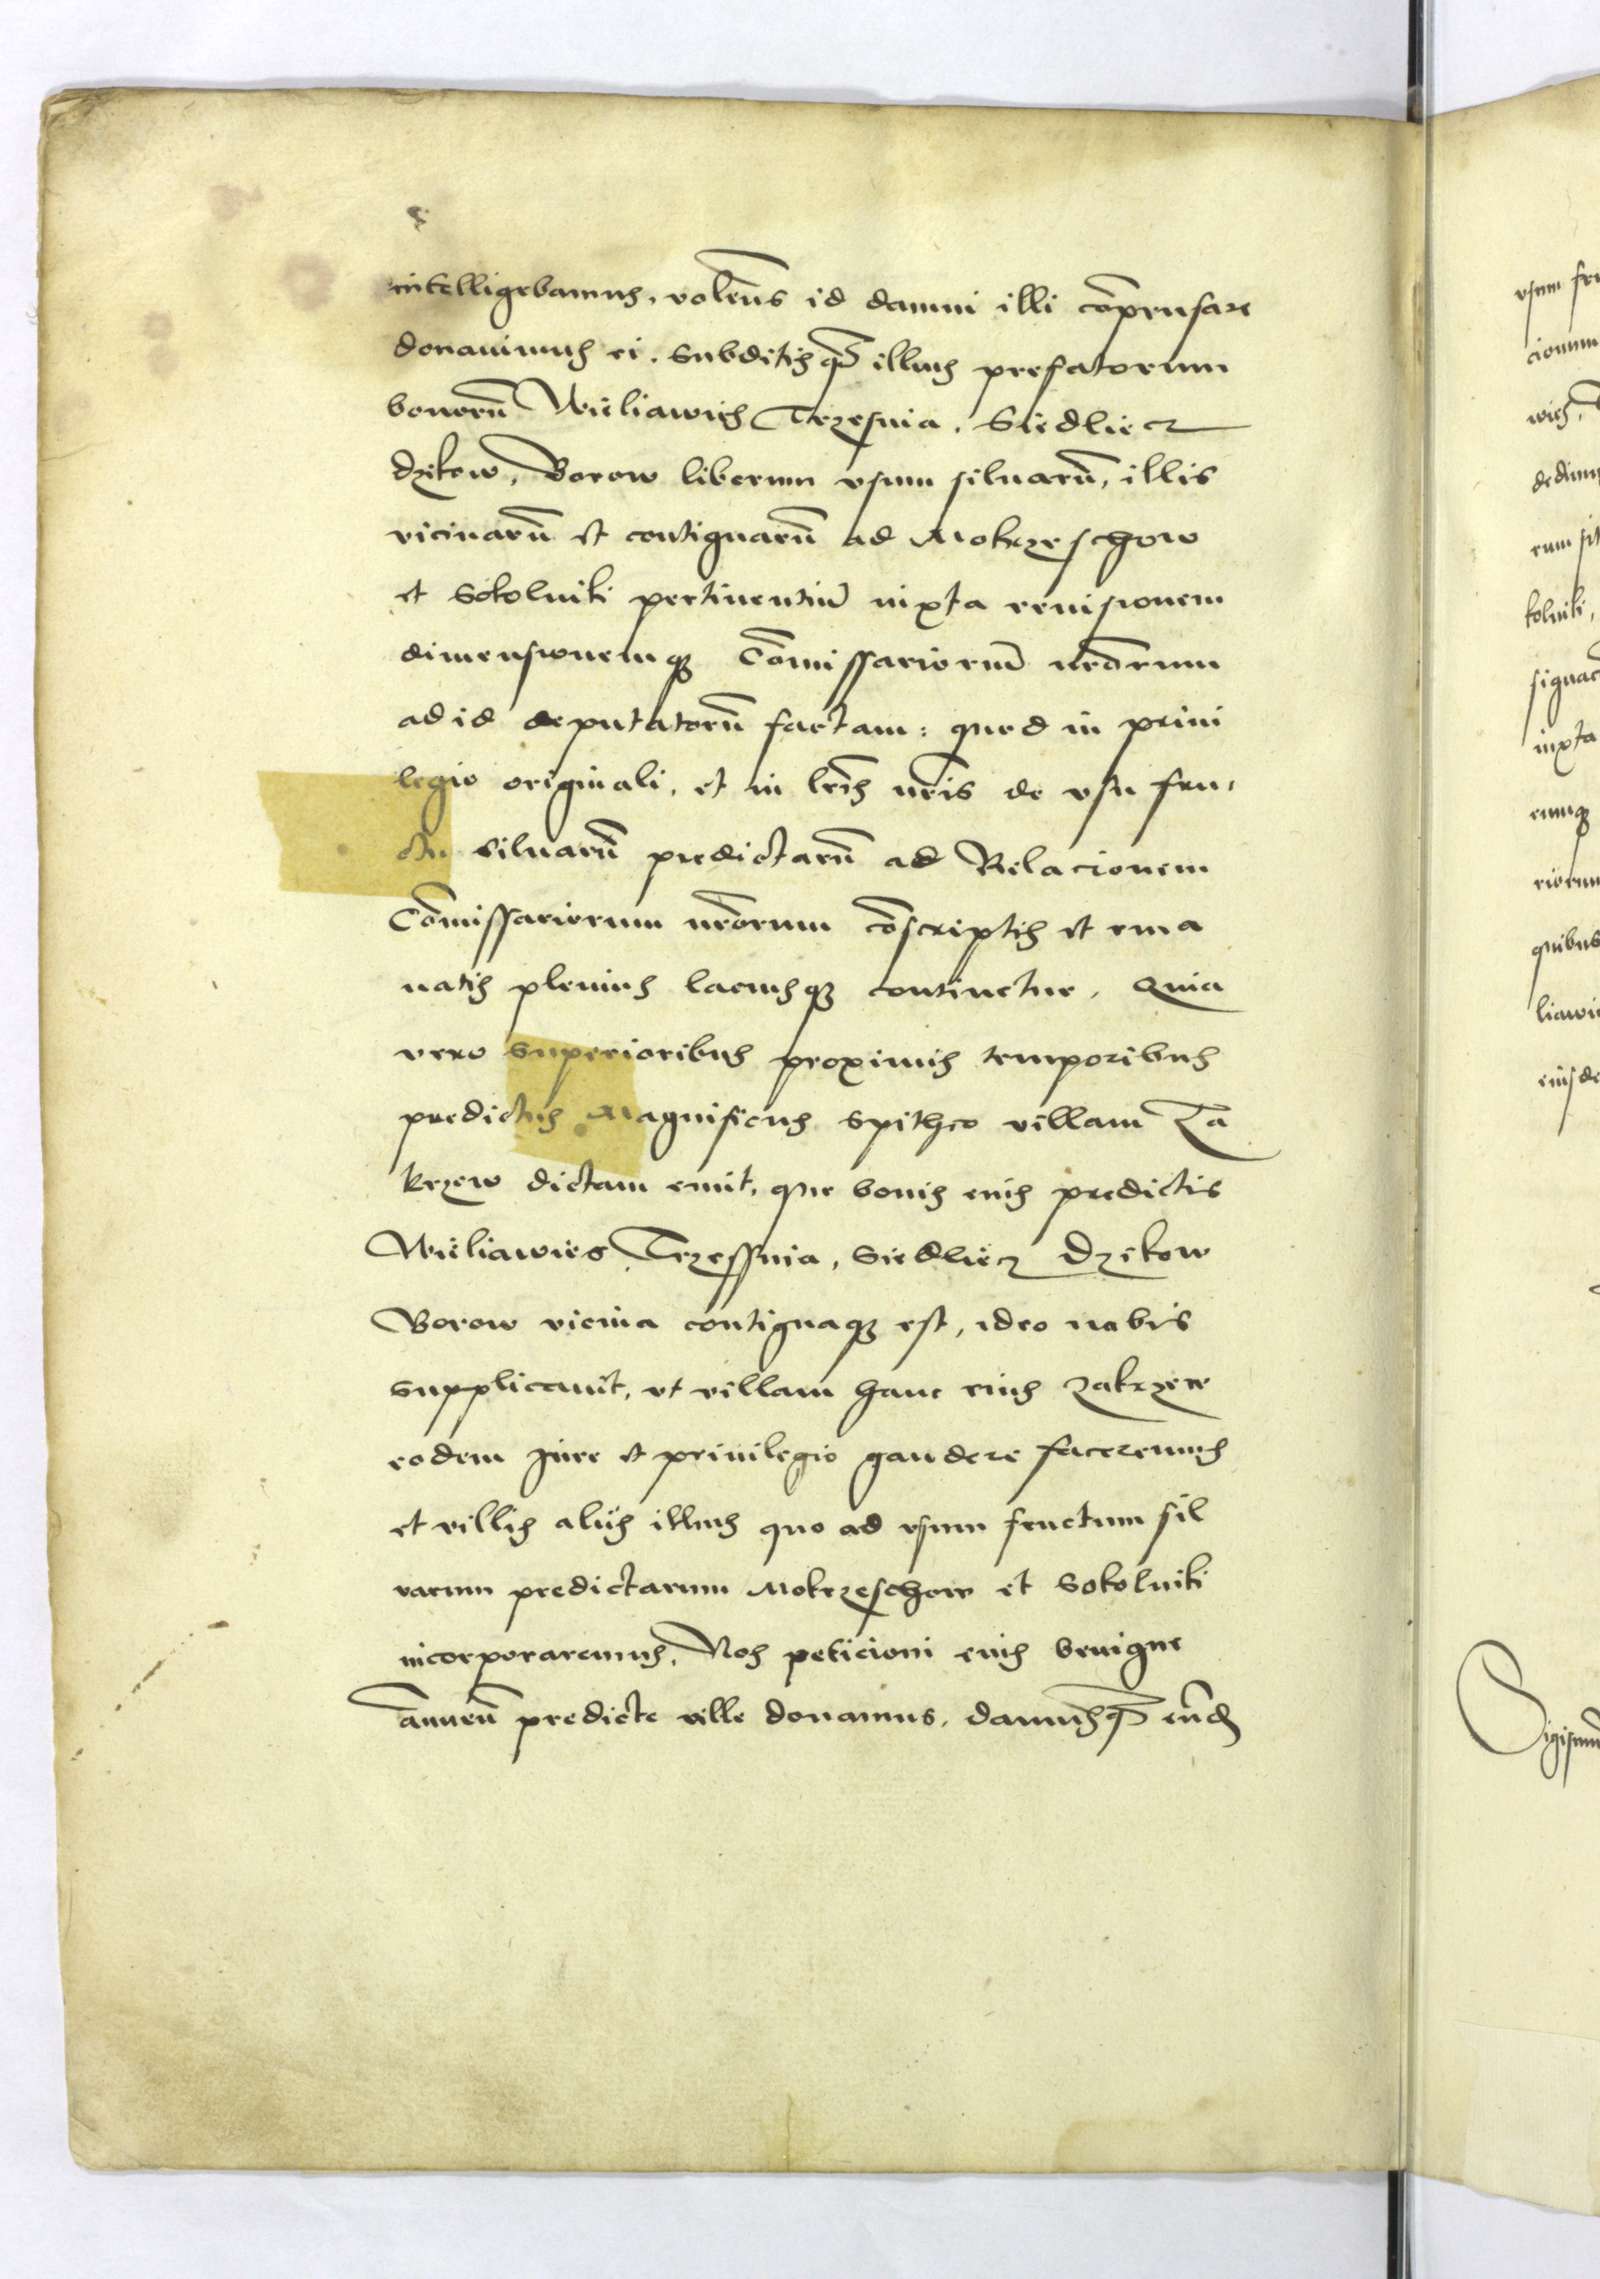 intelligebamus, volẽns id damni illi cõpensare
donavimus ei. Subditisq̃ illius prefatorum
bonorũ Wieliawiesz Trzesnia. Siedliecz
dzikow, Borow liberum vsum silvarũ, illis
vicinarũ et contiguarũ ad Mokrzeschow
et Sokolniki pertinentiũ iuxta revisionem
dimensionemqʒ Cõmissariorũ nr̃orum
ad id deputatorũ factam: quod in privi
legio originali, et in lr̃is nr̃is de vsu fru,
ctu silvarũ predictarũ ad Relacionem
Cõmissariorum nr̃orum cõscriptis et ema
natis plenius laciusqʒ continetur. Quia
vero superioribus proximis temporibus
predictus Magnificus Spithco villam Za
krzew dictam emit, que bonis eius predictis
Wieliawies Trzessnia, Siedliecz Dzikow
Borow vicina contiguaqʒ est, ideo nobis
supplicavit, vt villam hanc eius Zakrzew
eodem Jure et privilegio gaudere faceremus
et villis aliis illius quo ad vsum fructum sil
varum predictarum Mokrzeschow et Sokolniki
incorporaremus, Nos peticioni eius benigne
ãnuen̄ predicte ville donamus, damusq̃ eũd
vsum fru
cionum
dedim
rum sit
kolniki,
signac
iuxta
eumqʒ
riorum
quibus
liawi
eiusde
Sigismũ